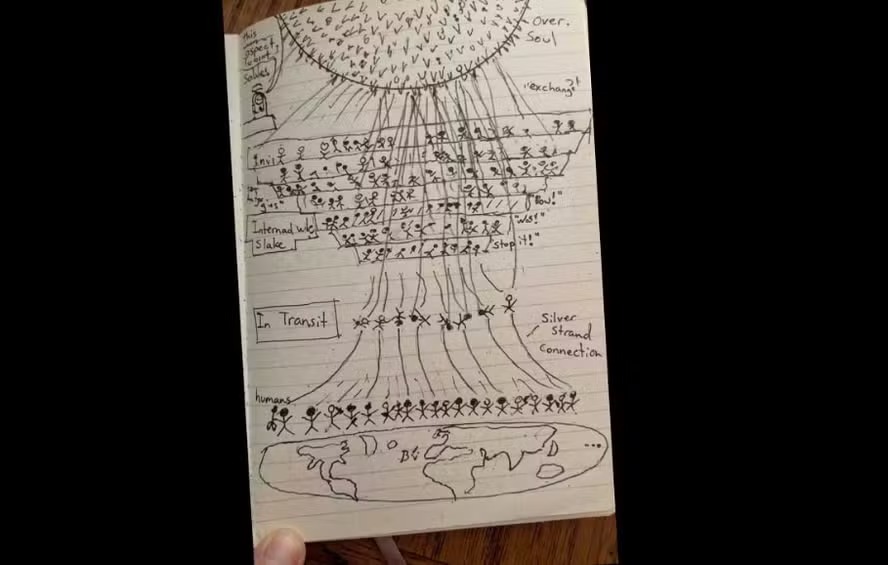 This
aspect
Over.
Soul
"exchange"
Invi
"gies"
Now!"
Internad
Slake
"No!"
Stop it!"
In Transit
Silver
Strand
Connection
humans
...